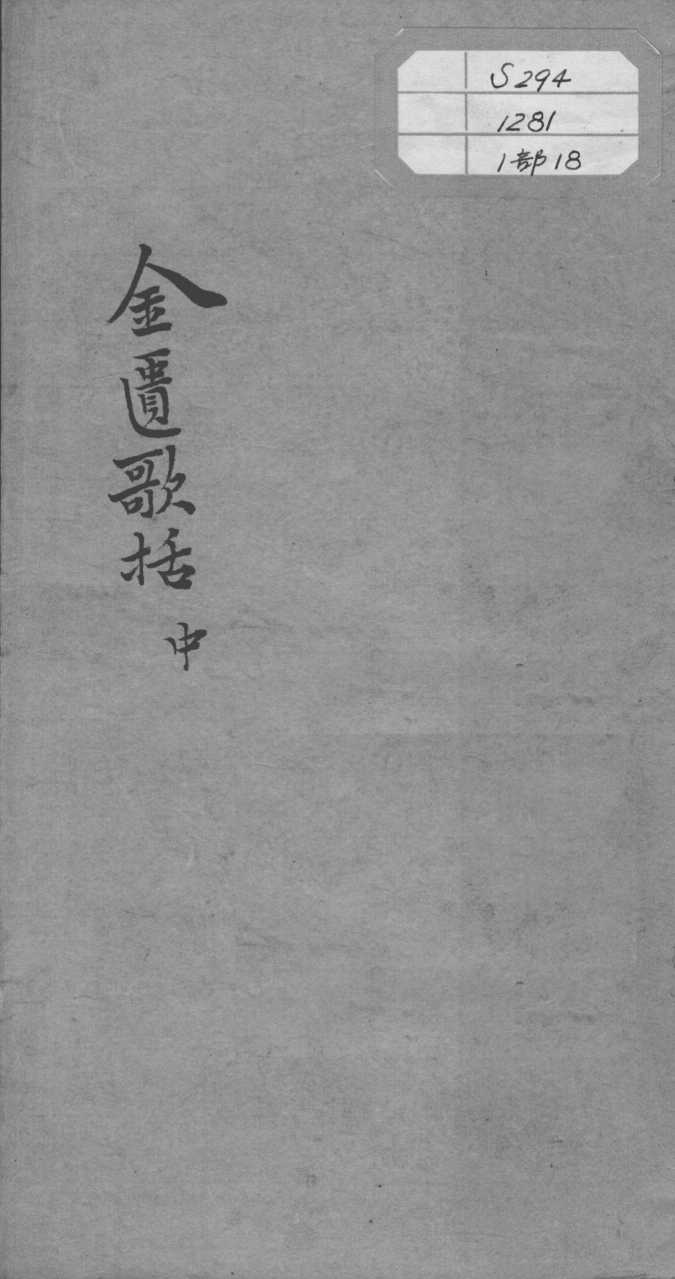 S294
1281
1部18
金匱歌括
中